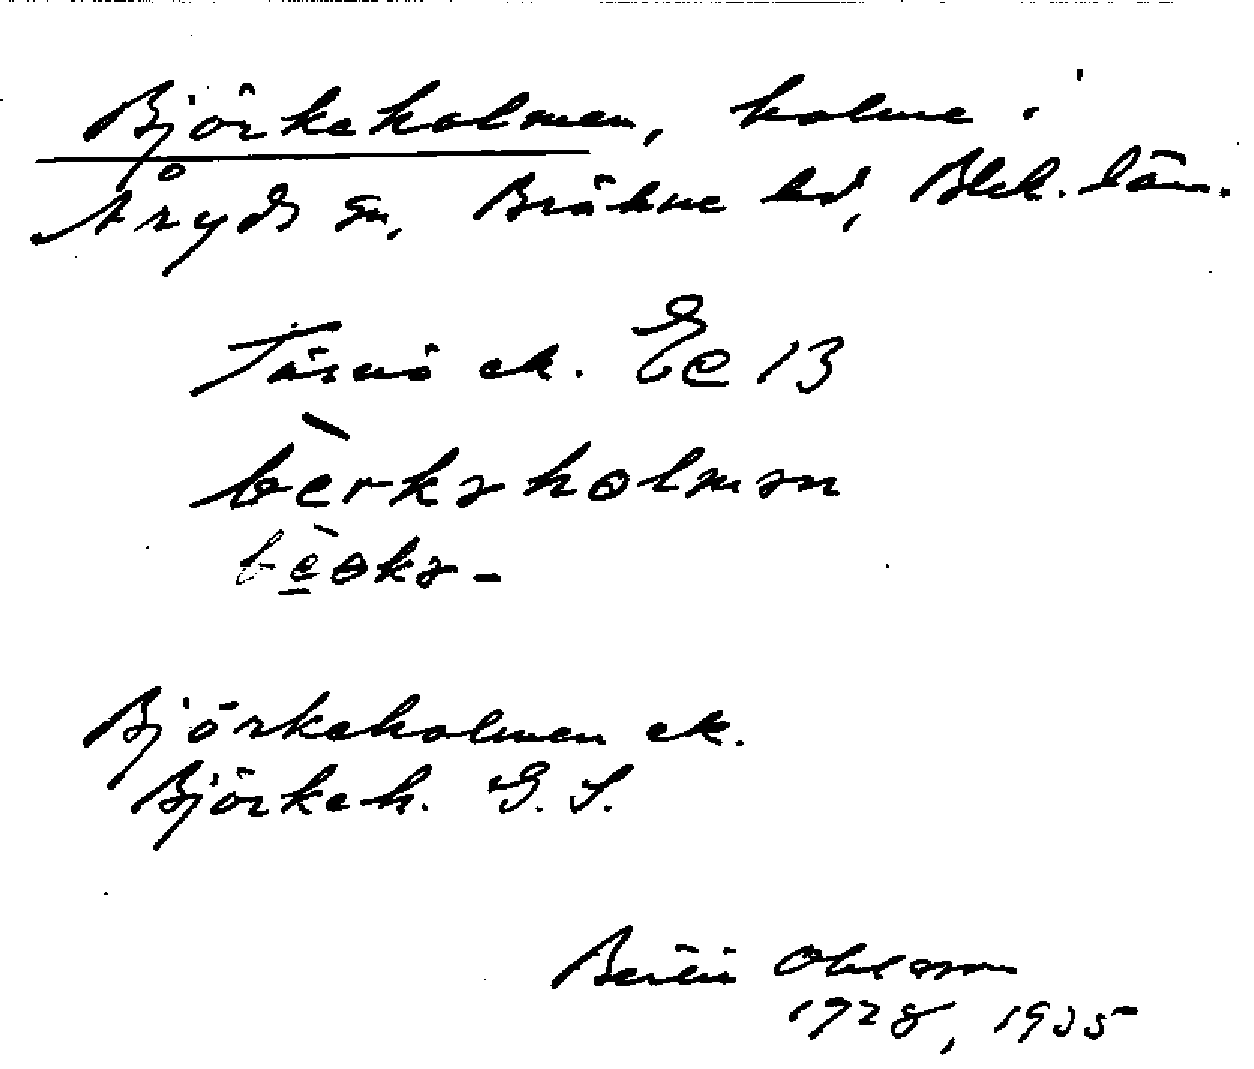 Björkeholmen, holme i
Åryds sn, Bräkne hd, Blek. län.
Tärnö ek. Ee 13
bèrkəholmən
bèokə-
Björkeholmen ek.
Björkeh. G. S.
Bertil Ohlsson
1928, 1935